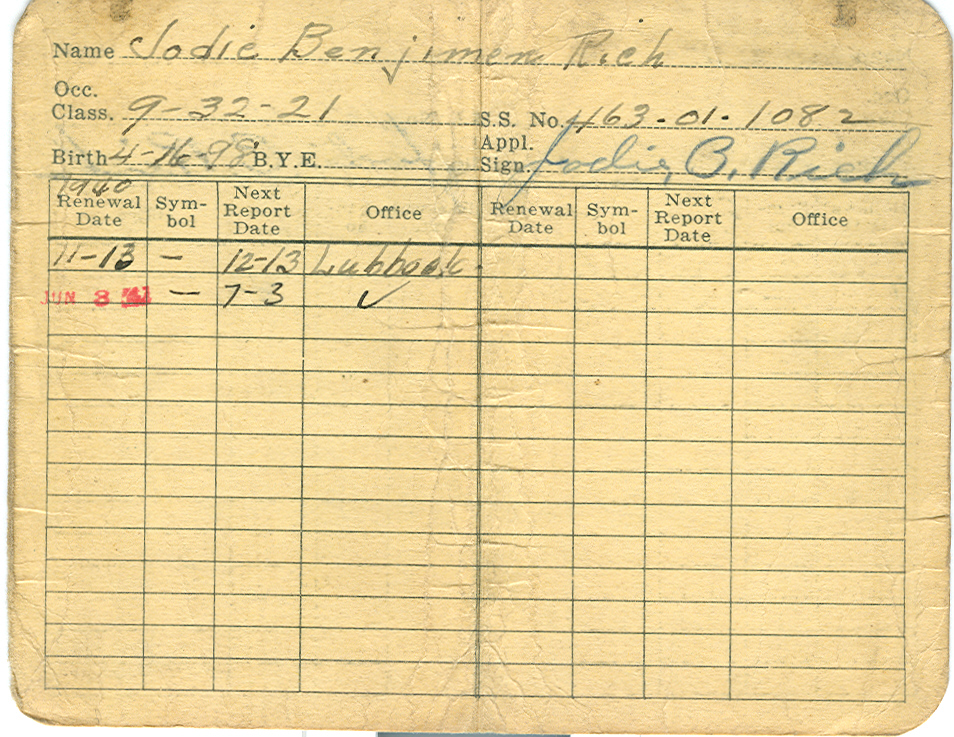 Name Jodie Benjimen Rich
Occ.
Class. 9-32-21 S.S. No. 463-01-1082
Appl.
Birth 4-16-98 B.Y.E. Sign. Jodie B. Rich
1940
Renewal Date Sym-bol Next Report Date Office Renewal Date Sym-bol Next Report Date Office
11-13 – 12-13 Lubbock.
JUN 3 – 7-3 ✓